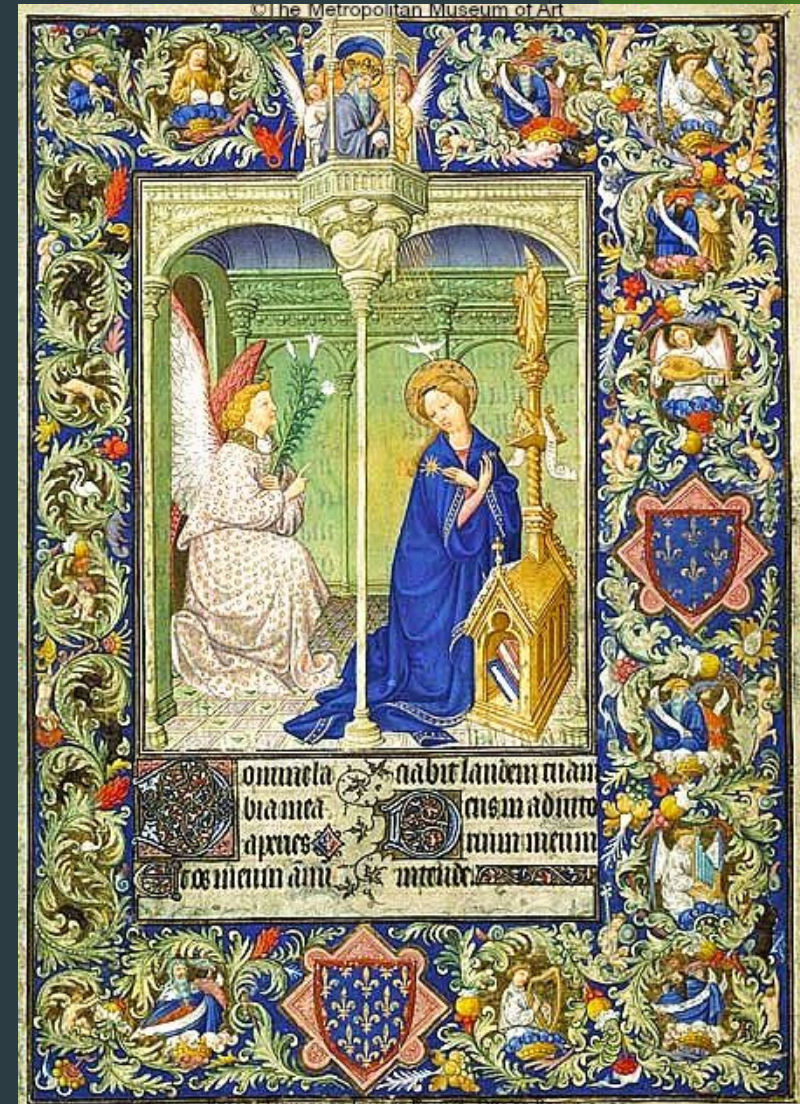 ©The Metropolitan Museum of Art
Domine la
bia mea
aperies
Et os meum annū
ciabit laudem tuam
Deus in adiuto
rium meum
intende.